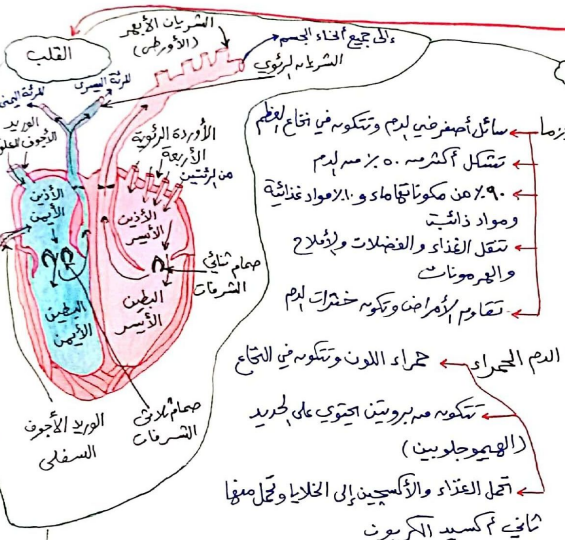 القلب
الشريان الأبهر
(الأورطي)
إلى جميع أنحاء الجسم
الشريان الرئوي
للرئة اليسرى
للرئة اليمنى
الوريد
الأجوف
الأوردة الرئوية
الأربعة
من الرئتين
الأذين
الأيمن
الأذين
الأيسر
صمام ثنائي
الشرفات
البطين
الأيمن
البطين
الأيسر
صمام ثلاثي
الشرفات
الوريد الأجوف
السفلي
سائل أصفر في الدم وتتكون في نخاع العظم
تشكل أكثر من ٥٠٪ من الدم
٩٠٪ من مكوناتها ماء و ١٠٪ مواد غذائية
ومواد ذائبة
تنقل الغذاء والفضلات والأملاح
والهرمونات
تقاوم الأمراض وتكون خثرات الدم
الدم الحمراء
حمراء اللون وتتكون في النخاع
تتكون من بروتين يحتوي على الحديد
(الهيموجلوبين)
تحمل الغذاء والأكسجين إلى الخلايا وتحمل منها
ثاني أكسيد الكربون